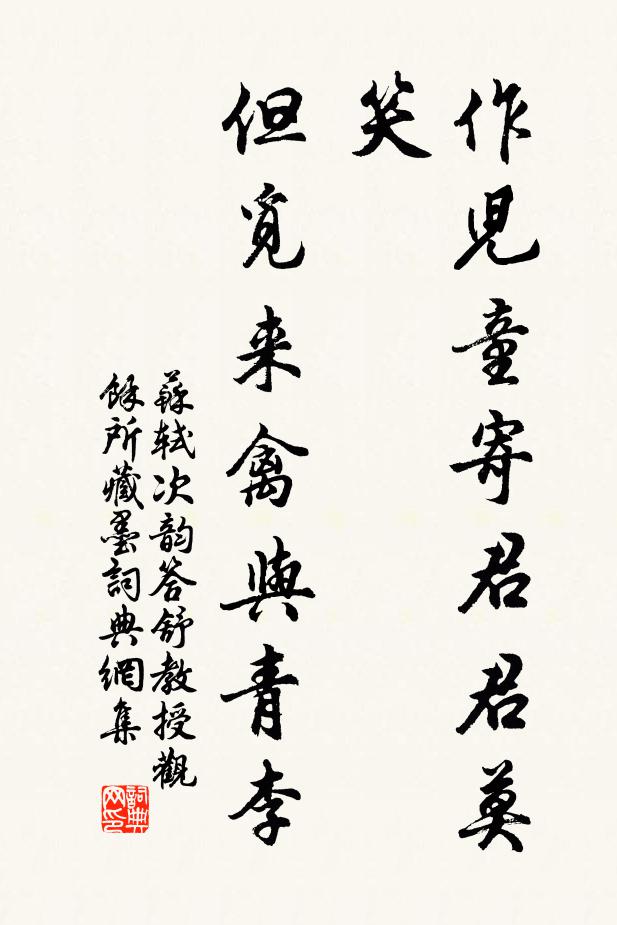 作兒童寄君君莫
笑
但覓来禽與青李
蘇軾次韵答舒教授觀
餘所藏墨詞典網集
詞典
网印